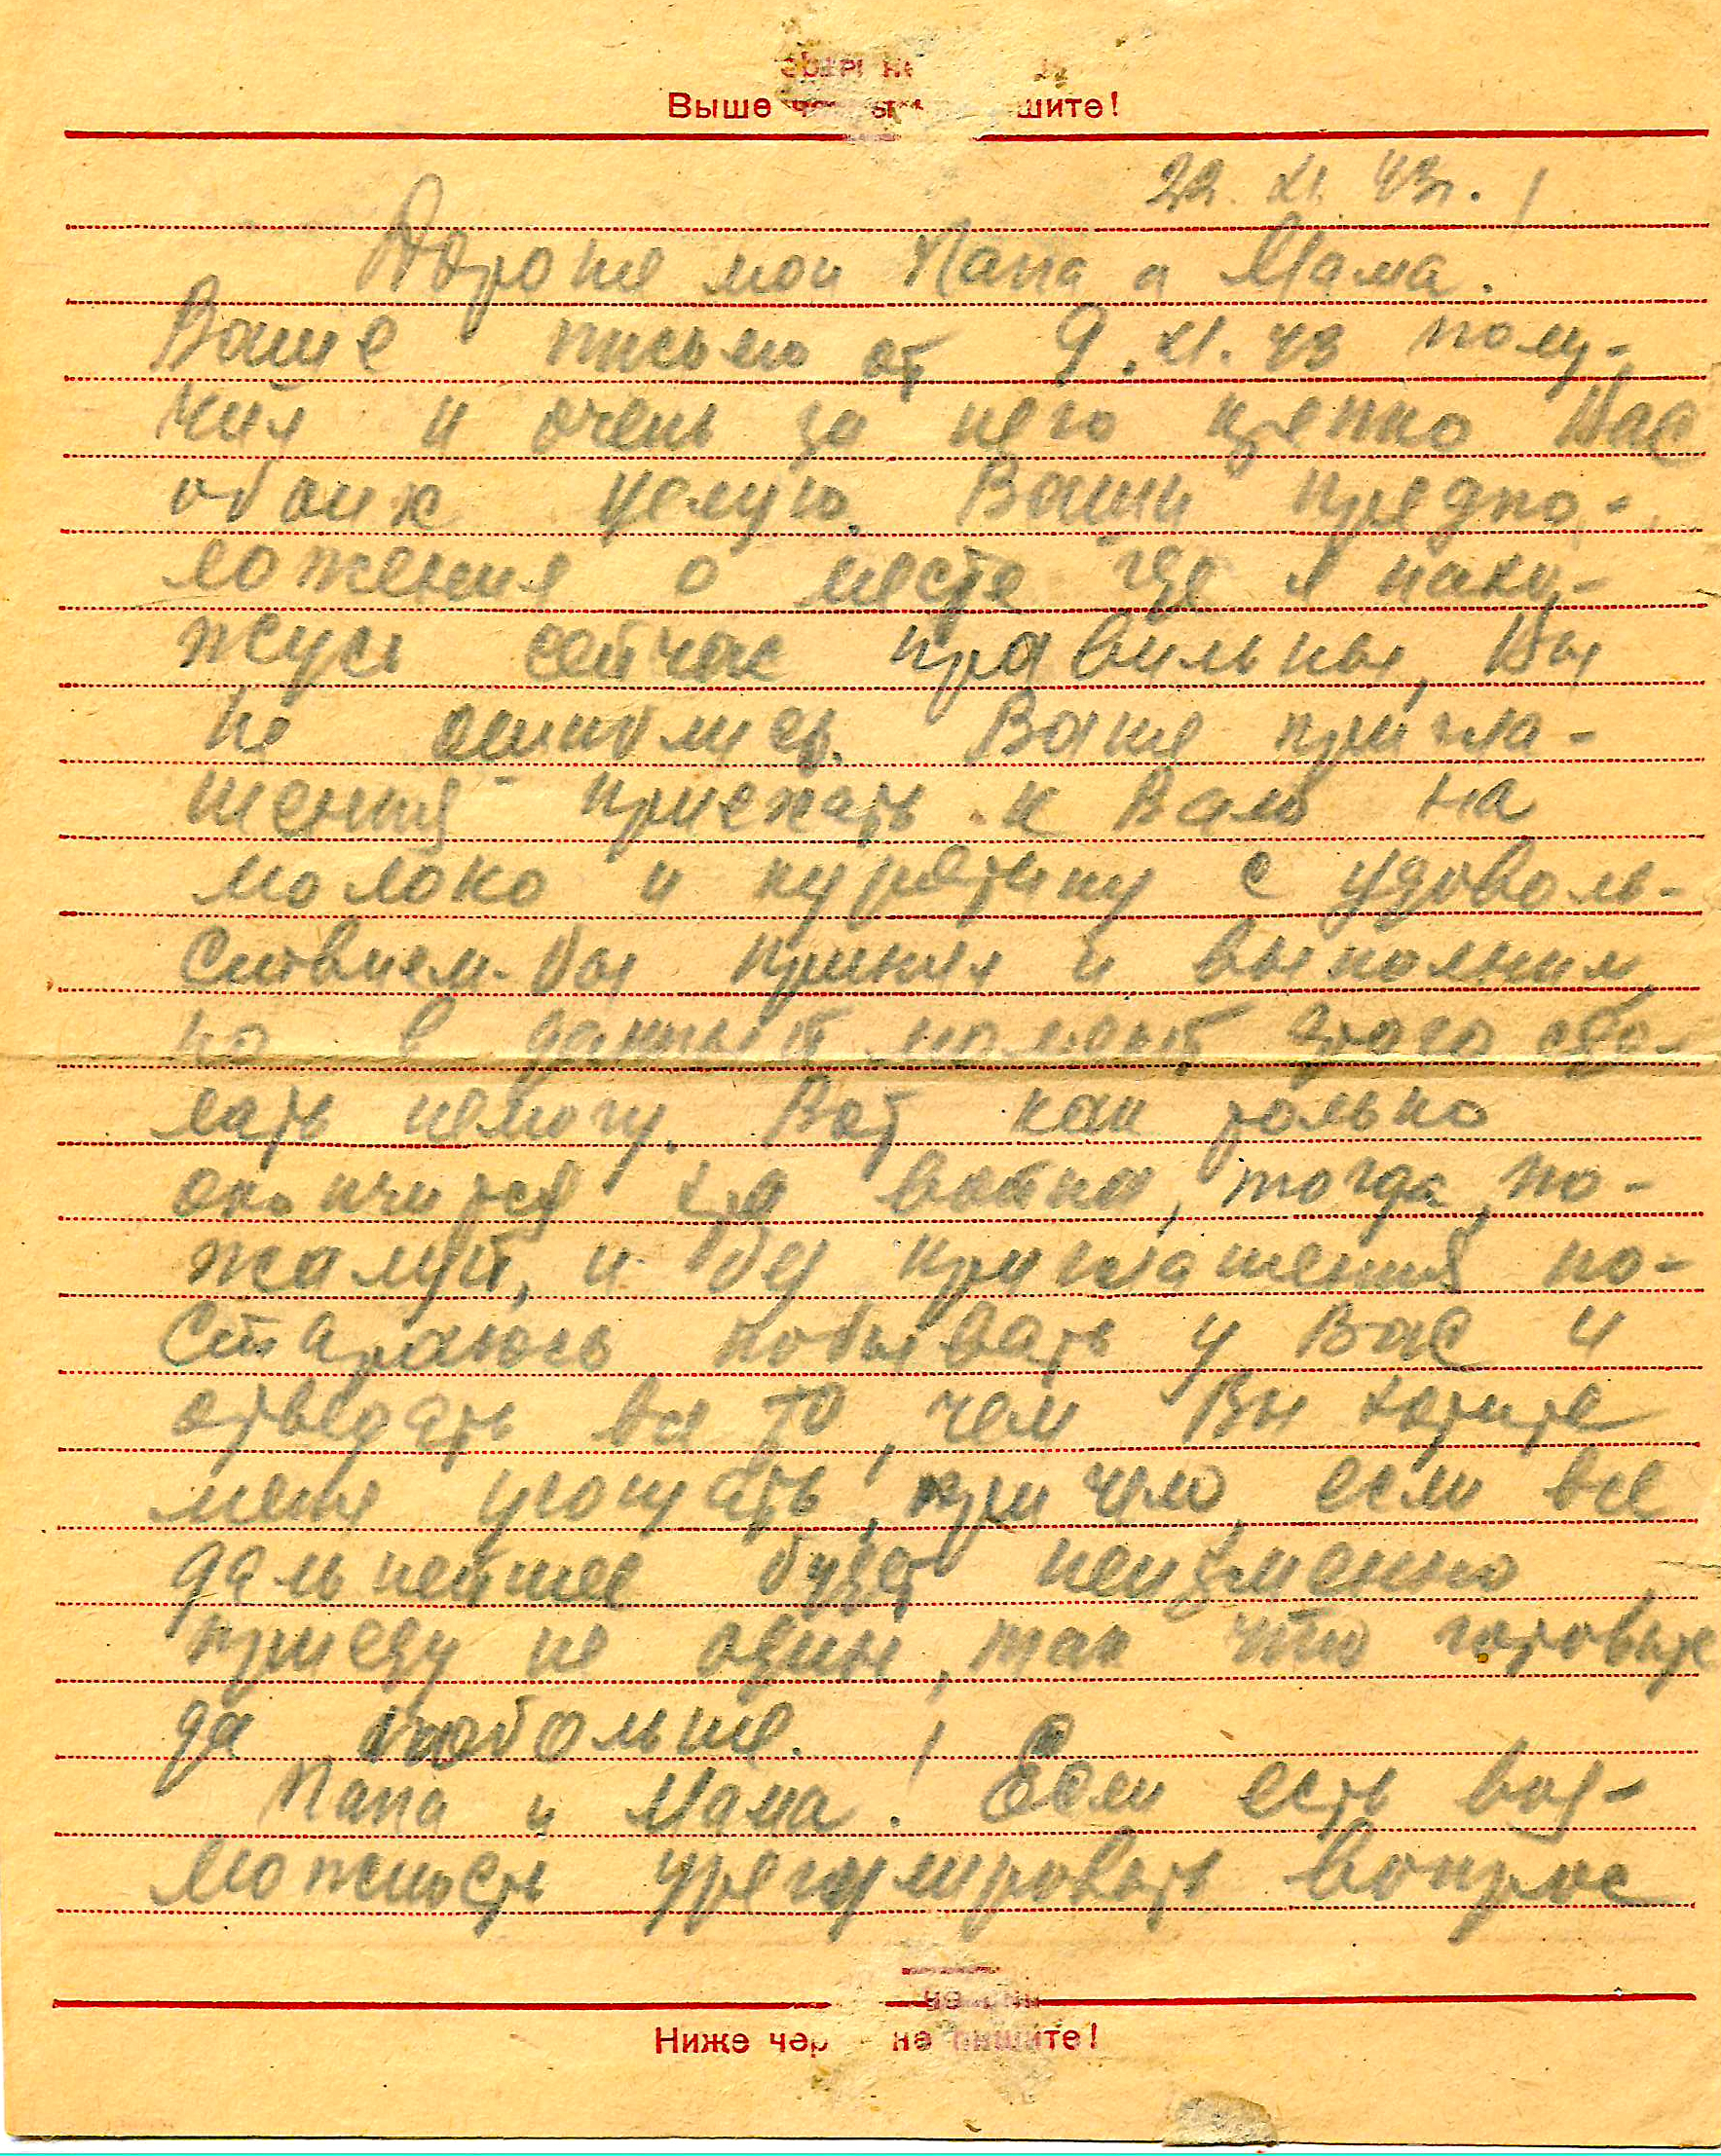 Выше шите!
22. XI. 43г.
Дорогие мои Папа и Мама.
Ваше письмо от 9. XI. 43 полу-
чил и очень за него крепко Вас
обоих целую. Ваши предпо-
ложения о месте где я нахо-
жусь сейчас правильны, Вы
не ошиблись. Ваше пригла-
шения приехать к Вам на
молоко и курятину с удоволь-
ствием-бы принял и выполнил
но в данный момент этого сде-
лать немогу. Вот как только
окончится война, тогда, по-
жалуй, и без приглашения по-
стараюсь побывать у Вас и
отведать все то, чем Вы хотите
меня угощать, при чем, если все
дальнейшее будет неизменно
приеду не один, так что готовьте
да побольше.
Папа и Мама! Если есть воз-
можность урегулировать вопрос
Ниже чер не пишите!